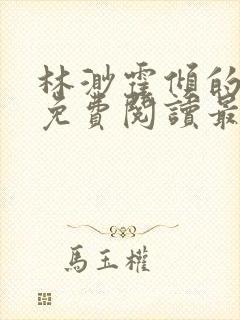 林渺霆傾的
免費閱讀最
馬玉權